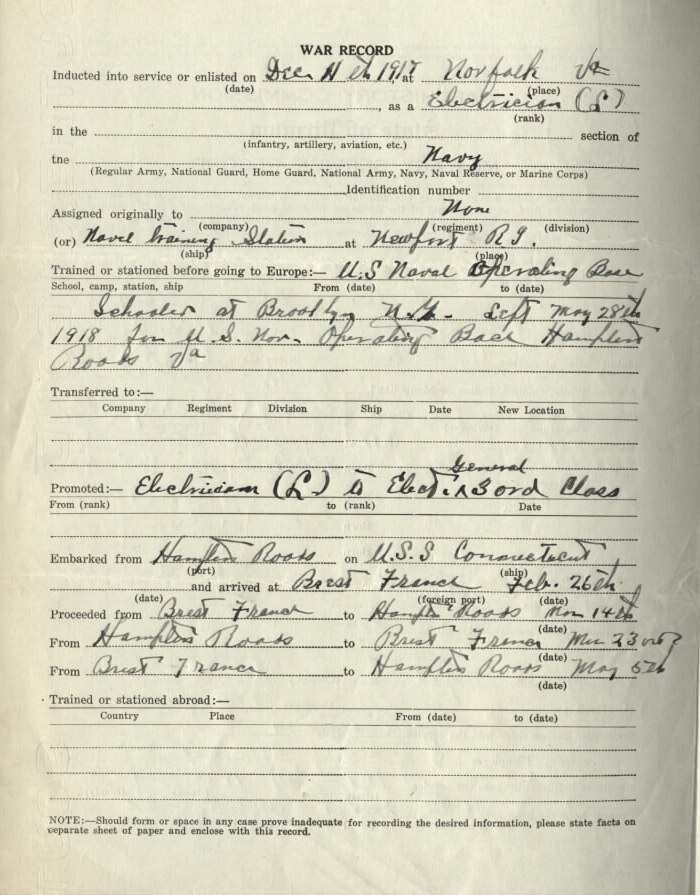 WAR RECORD
Inducted into service or enlisted on Dec 11th 1917 at Norfolk Va
(date) (place)
, as a Electrician (L)
(rank)
in the section of
(infantry, artillery, aviation, etc.)
tne Navy
(Regular Army, National Guard, Home Guard, National Army, Navy, Naval Reserve, or Marine Corps)
Identification number
Assigned originally to None
(company) (regiment) (division)
(or) Naval Training Station at Newport R.I.
(ship) (place)
Trained or stationed before going to Europe:— U.S Naval Operating Base
School, camp, station, ship From (date) to (date)
Schooled at Brooklyn N.Y. Left May 28th
1918 for U.S. Nav. Operating Base Hampton
Roads Va
Transferred to:—
Company Regiment Division Ship Date New Location
General
Promoted:— Electrician (L) to Elect. 3ord Class
From (rank) to (rank) Date
Embarked from Hampton Roads on U.S.S Connecticut
(port) (ship)
and arrived at Brest France Feb. 26th
(date) (foreign port) (date)
Proceeded from Brest France to Hampt Roads Mar 14th
(date)
From Hampton Roads to Brest France Mar 23ord
(date)
From Brest France to Hampton Roads May 5th
(date)
Trained or stationed abroad:—
Country Place From (date) to (date)
NOTE:—Should form or space in any case prove inadequate for recording the desired information, please state facts on
separate sheet of paper and enclose with this record.